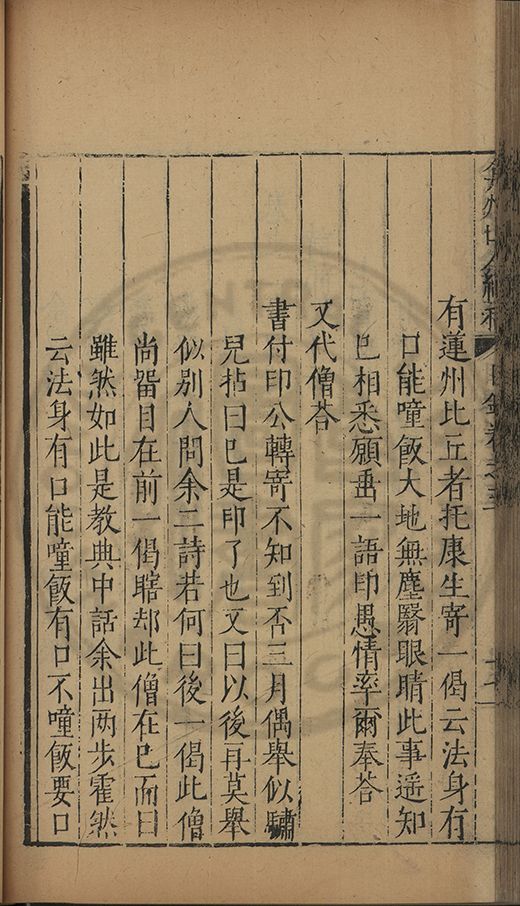 弇州山人續稿 目錄卷之三
有蓮州比丘者托康生寄一偈云法身有
口能噇飯大地無塵翳眼睛此事遥知
巳相悉願垂一語印愚情率爾奉荅
又代僧荅
書付印公轉寄不知到否三月偶舉似驌
兒拈曰巳是印了也又曰以後再莫舉
似別人問余二詩若何曰後一偈此僧
尚畱目在前一偈瞎却此僧在巳而曰
雖然如此是教典中話余出两步霍然
云法身有口能噇飯有口不噇飯要口